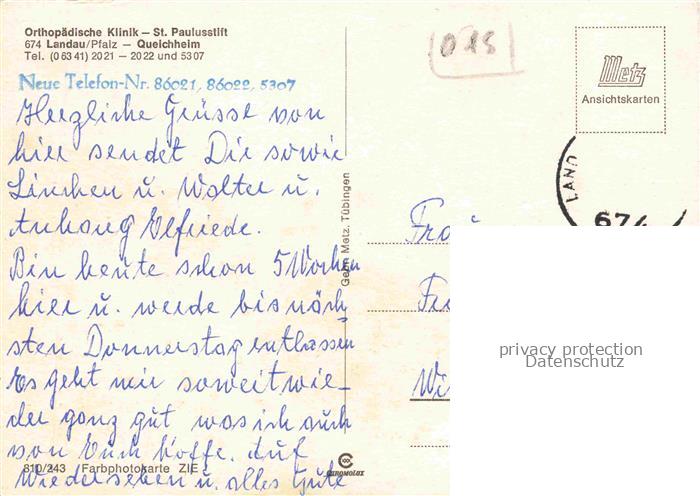 Orthopädische Klinik – St. Paulusstift
674 Landau/Pfalz – Queichheim
Tel. (0 63 41) 2021 – 2022 und 53 07
Neue Telefon-Nr. 86021, 86022, 5307
Herzliche Grüsse von
hier sendet Dir sowie
Linchen u. Walter u.
Anhang Elfriede.
Bin heute schon 5 Wochen
hier u. werde bis näch=
sten Donnerstag entlassen
Es geht mir soweit wie-
der ganz gut was ich auch
von Euch hoffe. Auf
Wiedersehen u. alles Gute
810/243 Farbphotokarte ZIE
CHROMOLUX
Gebr. Metz, Tübingen
015
Metz
Ansichtskarten
LAND
674
Frau
Wi
privacy protection
Datenschutz